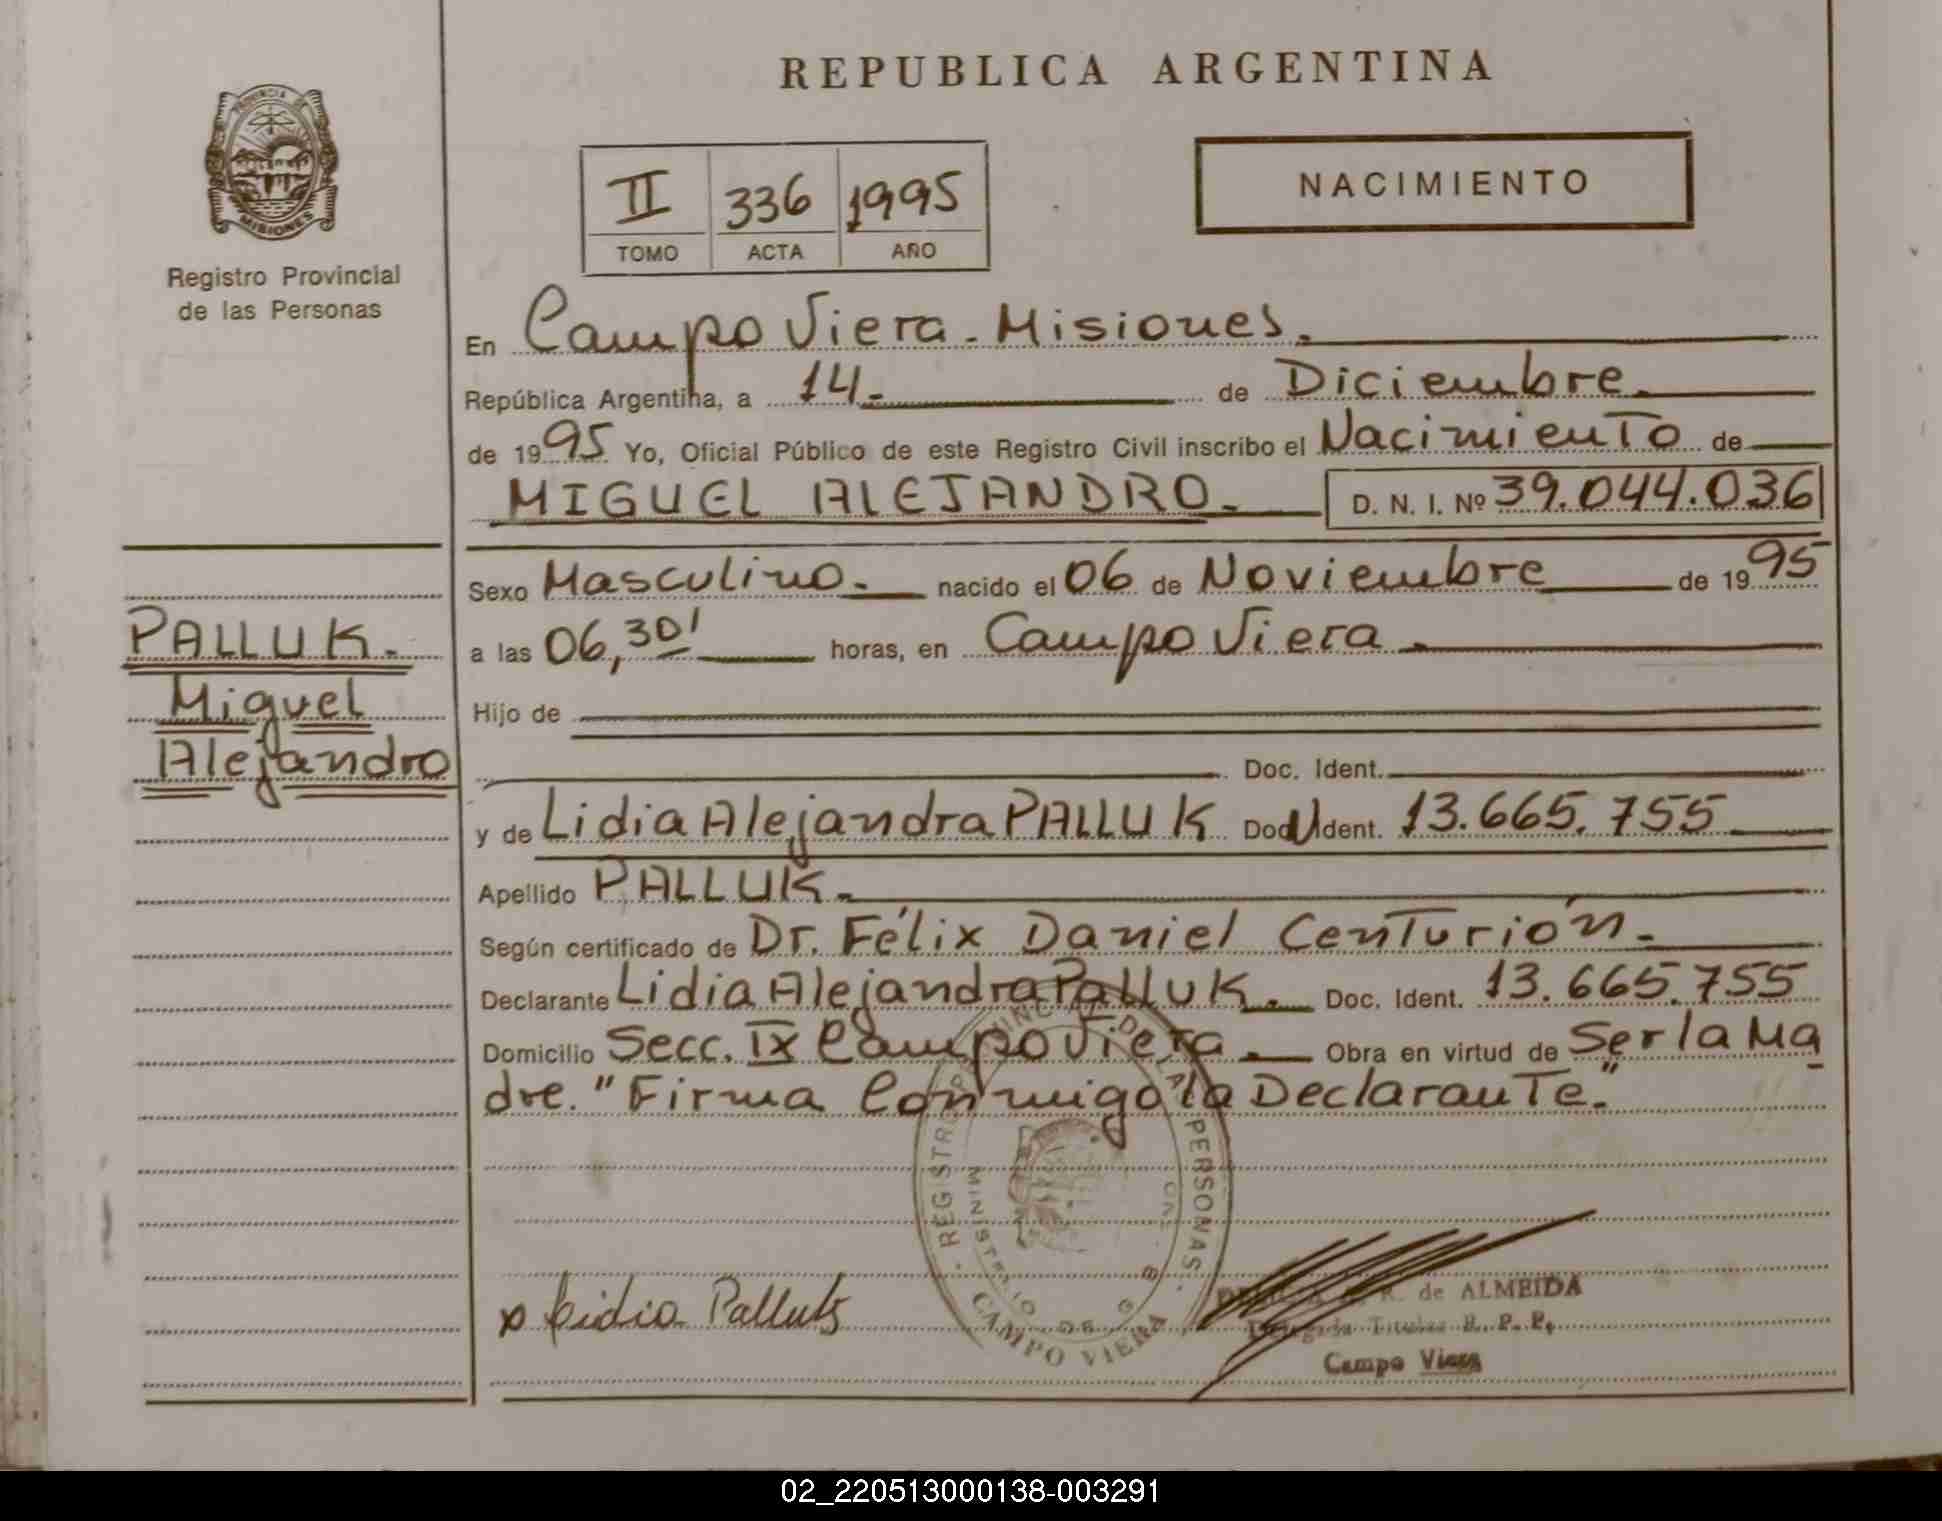 REPUBLICA ARGENTINA
PROVINCIA DE
MISIONES
Registro Provincial
de las Personas
II 336 1995
TOMO ACTA AÑO
NACIMIENTO
En Campo Viera - Misiones.
República Argentina, a 14.- de Diciembre.
de 1995 Yo, Oficial Público de este Registro Civil inscribo el Nacimiento de
MIGUEL ALEJANDRO.- D. N. I. Nº 39.044.036
Sexo Masculino.- nacido el 06 de Noviembre de 1995
PALLUK.-
Miguel
Alejandro
a las 06,30' horas, en Campo Viera.-
Hijo de
Doc. Ident.
y de Lidia Alejandra PALLUK Doc. Ident. 13.665.755
Apellido PALLUK.-
Según certificado de Dr. Félix Daniel Centurión.-
Declarante Lidia Alejandra Palluk.- Doc. Ident. 13.665.755
Domicilio Secc. IX Campo Viera.- Obra en virtud de Ser la Ma
dre. "Firma Conmigo la Declarante."
REGISTRO PROVINCIAL DE LAS PERSONAS
MINISTERIO DE
CAMPO VIERA
x Lidia Palluk
R. de ALMEIDA
Delegada Titular R. P. P.
Campo Viera
02_220513000138-003291